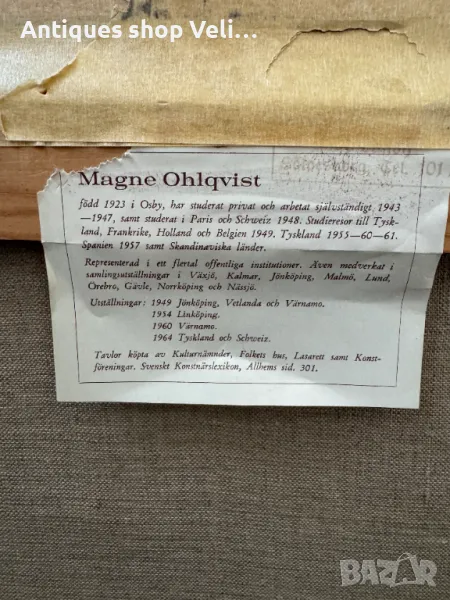 Antiques shop Veli...
Tel. 301
Magne Ohlqvist
född 1923 i Osby, har studerat privat och arbetat självständigt 1943
—1947, samt studerat i Paris och Schweiz 1948. Studieresor till Tysk-
land, Frankrike, Holland och Belgien 1949. Tyskland 1955—60—61.
Spanien 1957 samt Skandinaviska länder.
Representerad i ett flertal offentliga institutioner. Även medverkat i
samlingsutställningar i Växjö, Kalmar, Jönköping, Malmö, Lund,
Örebro, Gävle, Norrköping och Nässjö.
Utställningar: 1949 Jönköping, Vetlanda och Värnamo.
1954 Linköping.
1960 Värnamo.
1964 Tyskland och Schweiz.
Tavlor köpta av Kulturnämnder, Folkets hus, Lasarett samt Konst-
föreningar. Svenskt Konstnärslexikon, Allhems sid. 301.
BAZAR